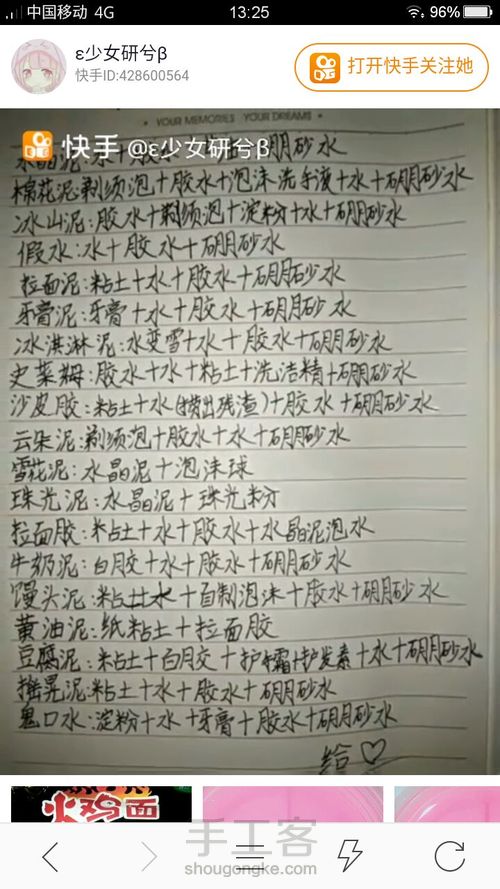 中国移动 4G 13:25 96%
ε少女研兮β
快手ID:428600564
打开快手关注她
YOUR MEMORIES YOUR DREAMS
快手 @ε少女研兮β
棉花泥:剃须泡+胶水+泡沫洗手液+水+硼砂水
冰山泥:胶水+剃须泡+淀粉+水+硼砂水
假水:水+胶水+硼砂水
拉面泥:粘土+水+胶水+硼砂水
牙膏泥:牙膏+水+胶水+硼砂水
冰淇淋泥:水变雪+水+胶水+硼砂水
史莱姆:胶水+水+粘土+洗洁精+硼砂水
沙皮胶:粘土+水(捞出残渣)+胶水+硼砂水
云朵泥:剃须泡+胶水+水+硼砂水
雪花泥:水晶泥+泡沫球
珠光泥:水晶泥+珠光粉
拉面胶:粘土+水+胶水+水晶泥泡水
牛奶泥:白胶+水+胶水+硼砂水
馒头泥:粘土水+自制泡沫+胶水+硼砂水
黄油泥:纸粘土+拉面胶
豆腐泥:粘土+白胶+护霜+护发素+水+硼砂水
摇晃泥:粘土+水+胶水+硼砂水
鬼口水:淀粉+水+牙膏+胶水+硼砂水
给♡
火鸡面
手工客
shougongke.com